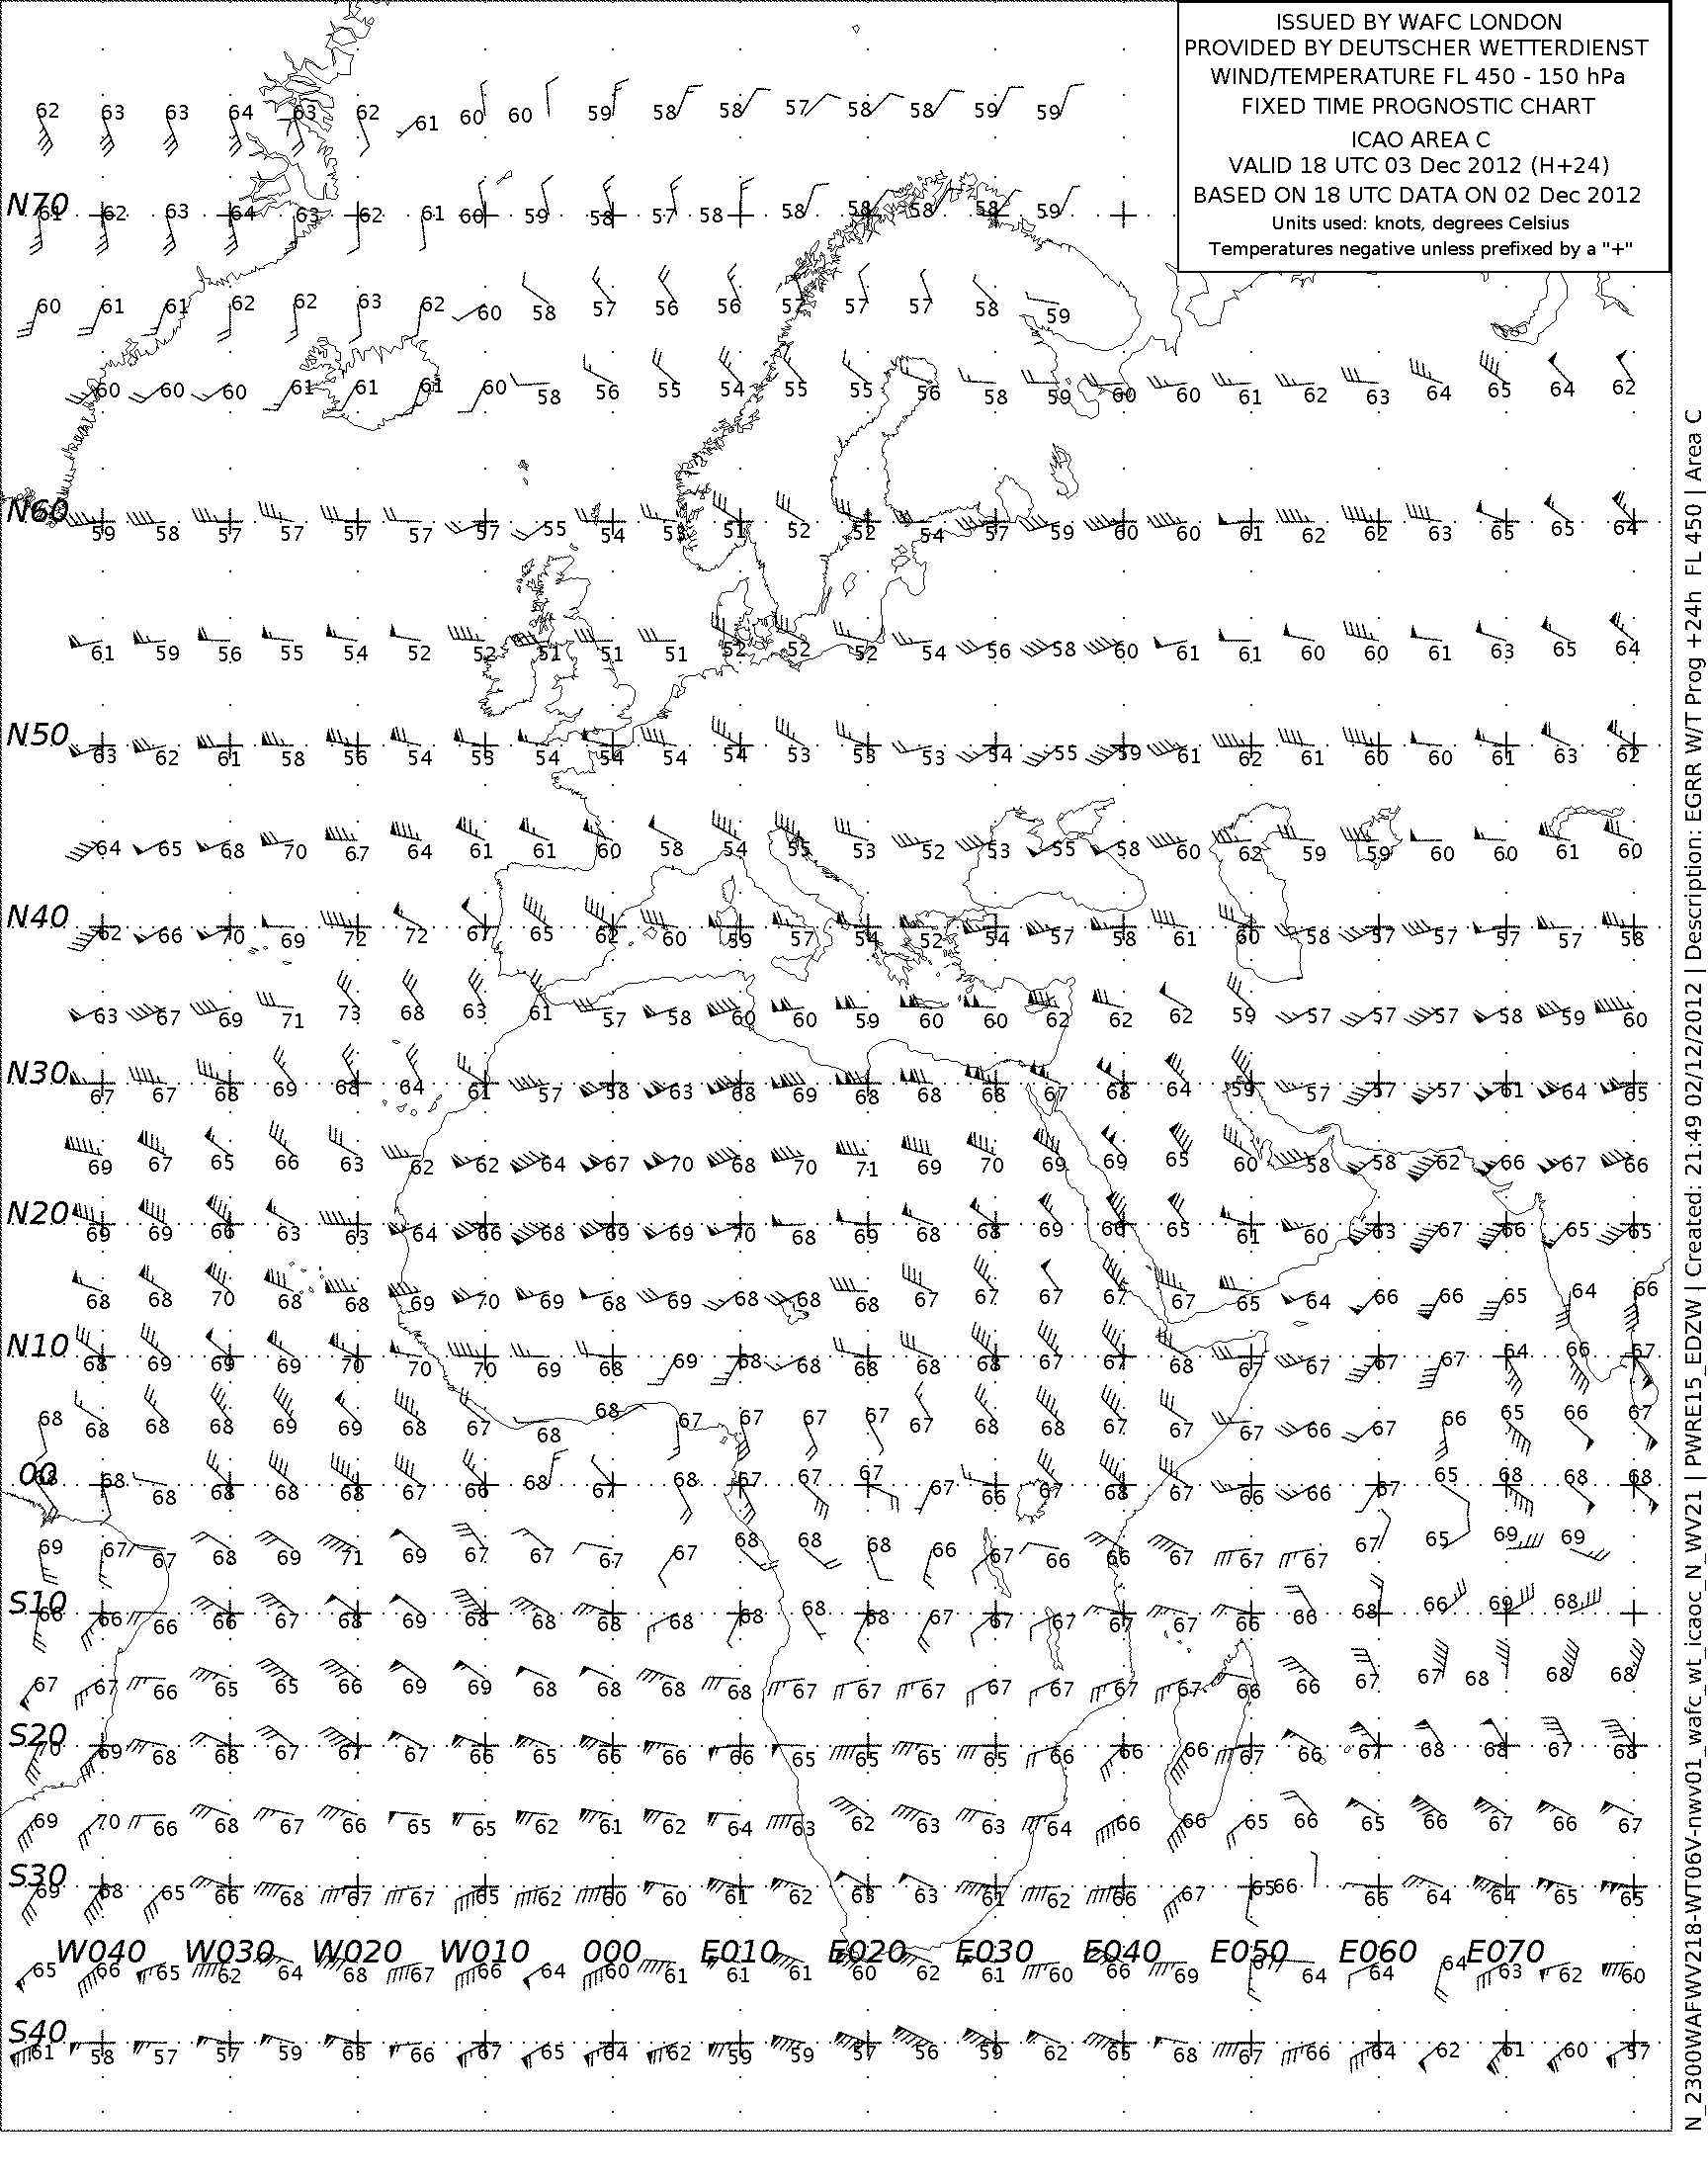 ISSUED BY WAFC LONDON
PROVIDED BY DEUTSCHER WETTERDIENST
WIND/TEMPERATURE FL 450 - 150 hPa
FIXED TIME PROGNOSTIC CHART
ICAO AREA C
VALID 18 UTC 03 Dec 2012 (H+24)
BASED ON 18 UTC DATA ON 02 Dec 2012
Units used: knots, degrees Celsius
Temperatures negative unless prefixed by a "+"
62 63 63 64 63 62 61 60 60 59 58 58 57 58 58 59 59
N70
61 62 63 64 63 62 61 60 59 58 57 58 58 58 58 58 59
60 61 61 62 62 63 62 60 58 57 56 56 57 57 57 58 59
60 60 60 61 61 61 60 58 56 55 54 55 55 56 58 59 60 60 61 62 63 64 65 64 62
N60
59 58 57 57 57 57 57 55 54 53 51 52 52 54 57 59 60 60 61 62 62 63 65 65 64
61 59 56 55 54 52 52 51 51 51 52 52 52 54 56 58 60 61 61 60 60 61 63 65 64
N50
63 62 61 58 56 54 55 54 54 54 54 53 55 53 54 55 59 61 62 61 60 60 61 63 62
64 65 68 70 67 64 61 61 60 58 54 55 53 52 53 55 58 60 62 59 59 60 60 61 60
N40
62 66 70 69 72 72 67 65 62 60 59 57 54 52 54 57 58 61 60 58 57 57 57 57 58
63 67 69 71 73 68 63 61 57 58 60 60 59 60 60 62 62 62 59 57 57 57 58 59 60
N30
67 67 68 69 68 64 61 57 58 63 68 69 68 68 68 67 68 64 59 57 57 57 61 64 65
69 67 65 66 63 62 62 64 67 70 68 70 71 69 70 69 69 65 60 58 58 62 66 67 66
N20
69 69 66 63 63 64 66 68 69 69 70 68 69 68 68 69 66 65 61 60 63 67 66 65 65
68 68 70 68 68 69 70 69 68 69 68 68 68 67 67 67 67 67 65 64 66 66 65 64 66
N10
68 69 69 69 70 70 70 69 68 69 68 68 68 68 68 67 67 68 67 67 67 67 64 66 67
68 68 68 68 69 69 68 67 68 68 67 67 67 67 67 68 68 67 67 67 66 67 66 65 66 67
00
68 68 68 68 68 68 67 66 68 67 68 67 67 67 67 66 67 68 67 66 66 67 65 68 68 68
69 67 67 68 69 71 69 67 67 67 67 68 68 68 66 67 66 66 67 67 67 67 65 69 69
S10
66 66 66 66 67 68 69 68 68 68 68 68 68 68 67 67 67 67 67 66 66 68 66 69 68
67 67 66 65 65 66 69 69 68 68 68 68 67 67 67 67 67 67 67 66 66 67 67 68 68 68
S20
70 69 68 68 67 67 67 66 65 66 66 66 65 65 65 65 66 66 66 67 66 67 68 68 67 68
69 70 66 68 67 66 65 65 62 61 62 64 63 62 63 63 64 66 66 65 66 65 66 67 66 67
S30
69 68 65 66 68 67 67 65 62 60 60 61 62 63 63 61 62 66 67 65 66 66 64 64 65 65
W040 W030 W020 W010 000 E010 E020 E030 E040 E050 E060 E070
65 66 65 62 64 68 67 66 64 60 61 61 61 60 62 61 60 66 69 67 64 64 64 63 62 60
S40
61 58 57 57 59 63 66 67 65 64 62 59 59 57 56 59 62 65 68 67 66 64 62 61 60 57
N_2300WAFWV218-WT06V-nwv01_wafc_wt_icaoc_N_WV21 | PWRE15_EDZW | Created: 21:49 02/12/2012 | Description: EGRR W/T Prog +24h FL 450 | Area C